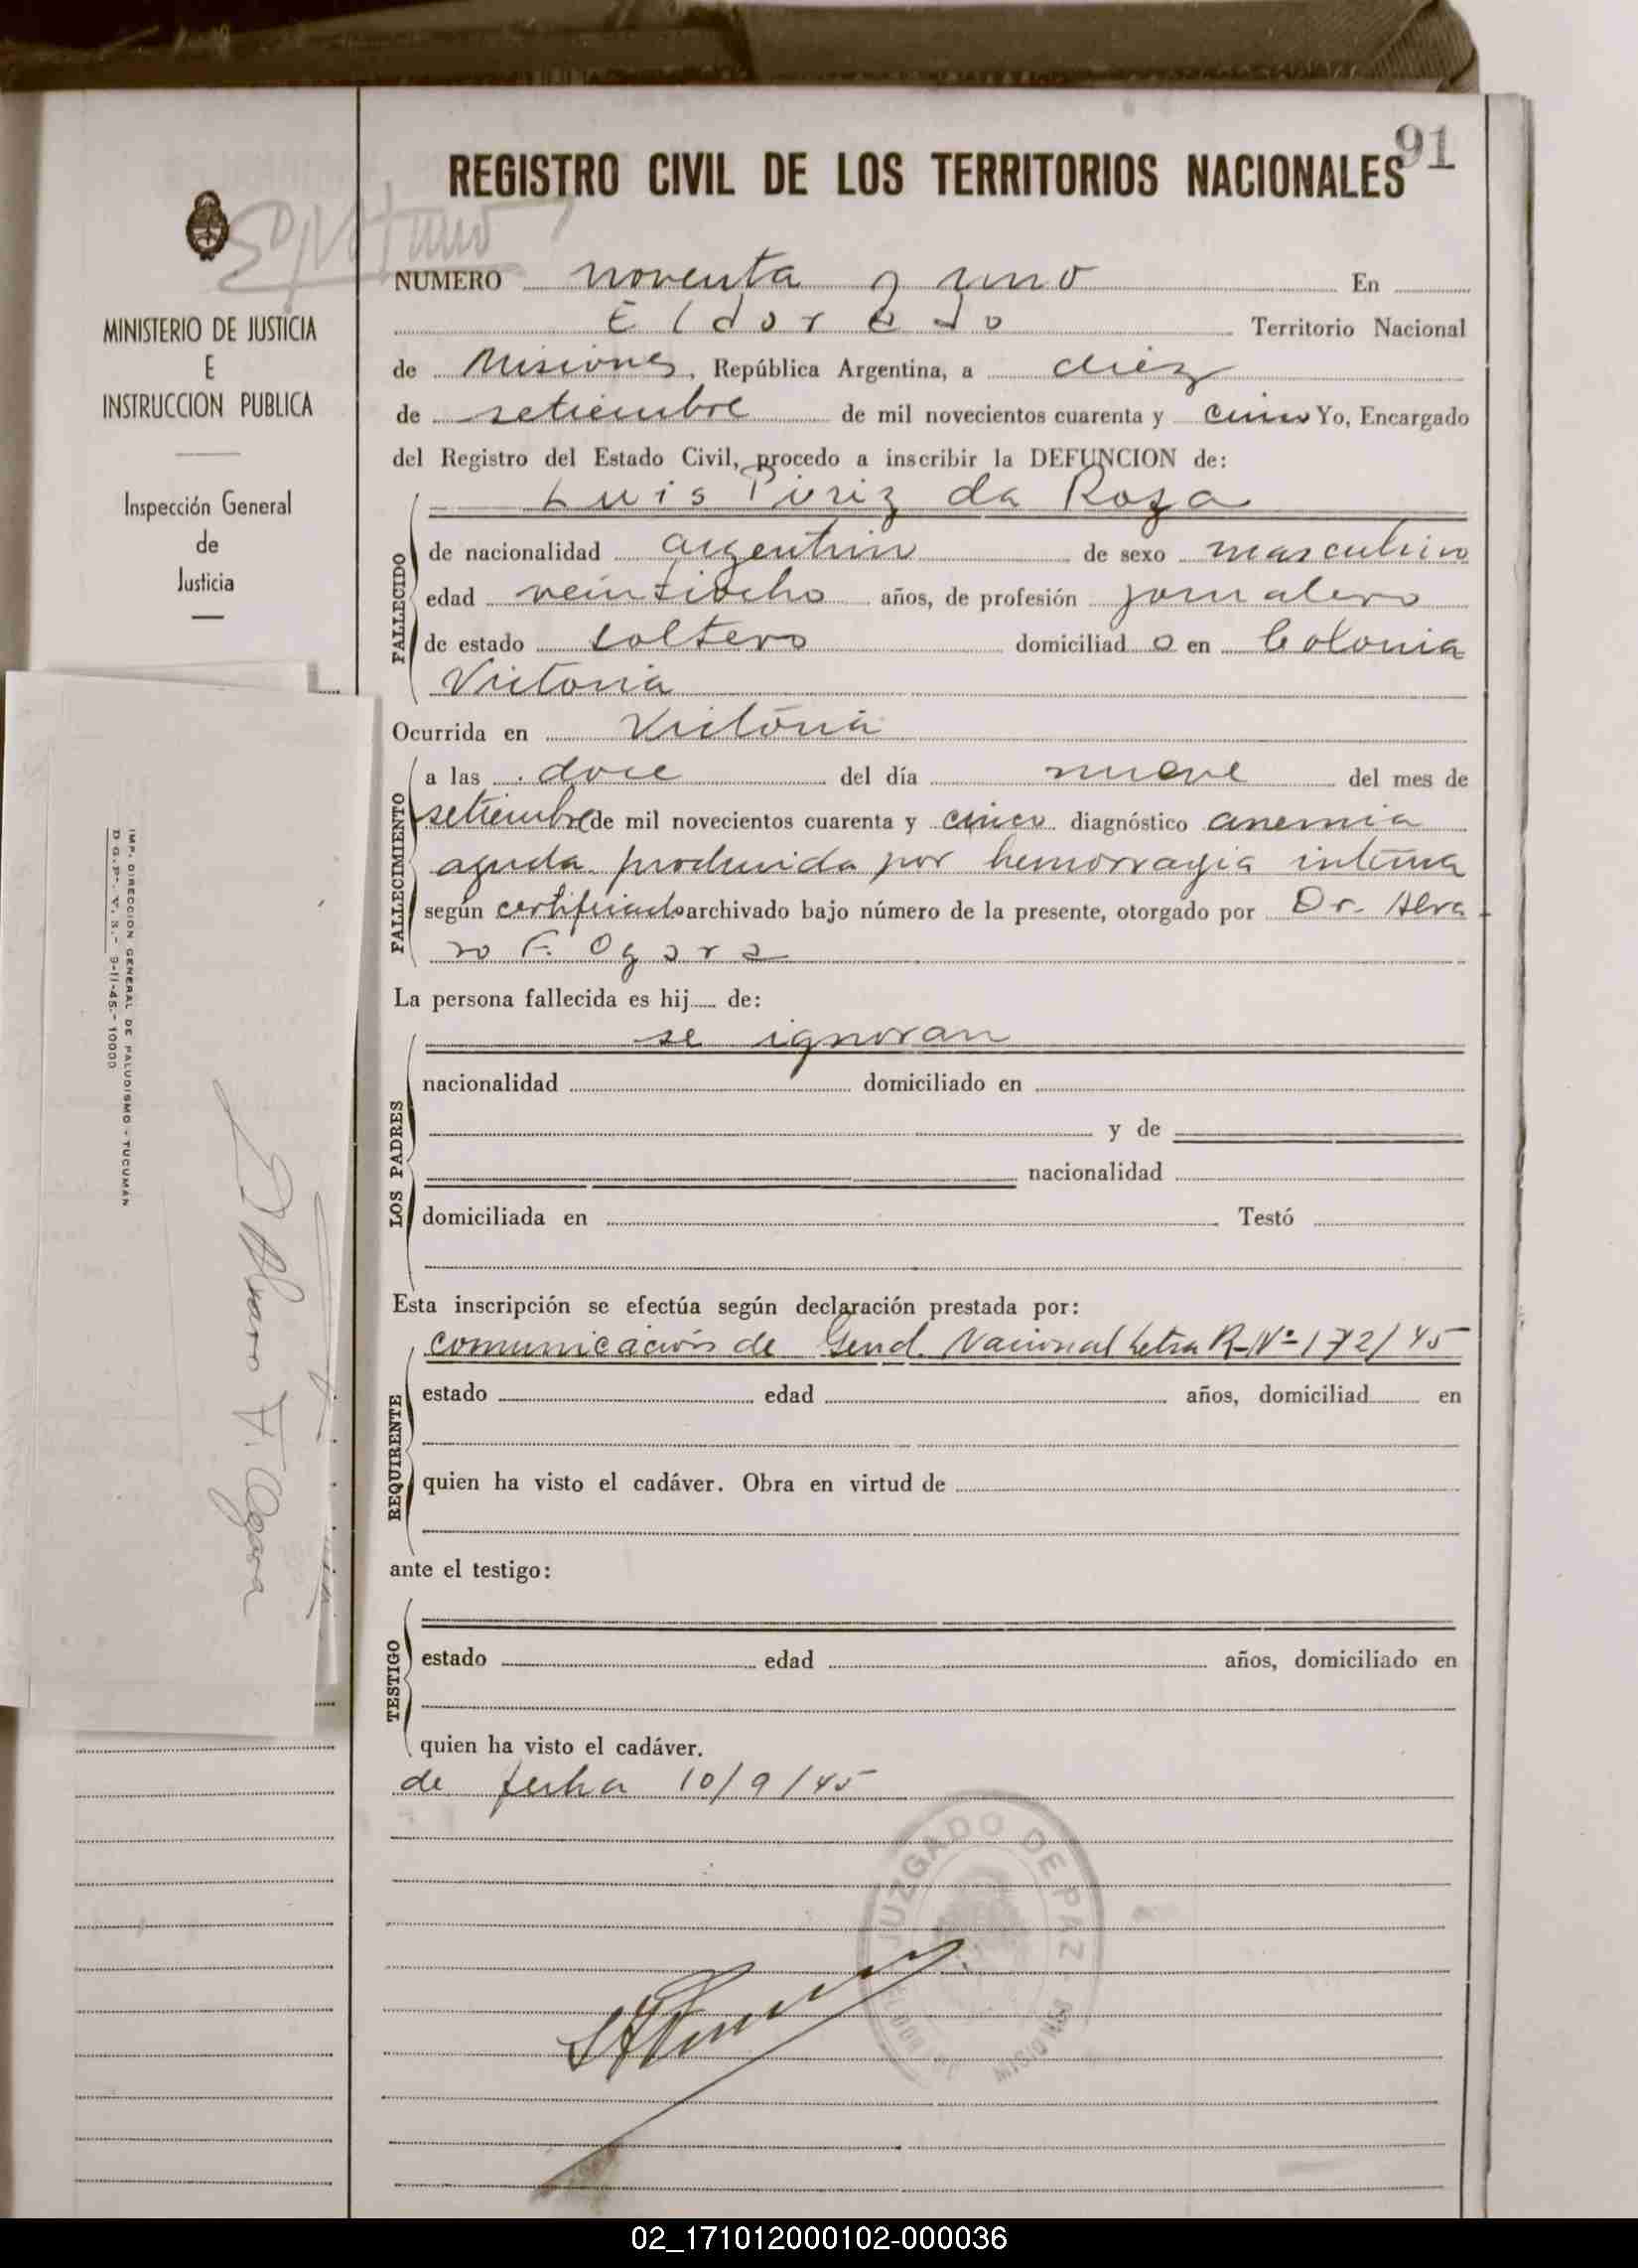 91
REGISTRO CIVIL DE LOS TERRITORIOS NACIONALES
MINISTERIO DE JUSTICIA
E
INSTRUCCION PUBLICA
Inspección General
de
Justicia
NUMERO noventa y uno En
Eldorado Territorio Nacional
de Misiones, República Argentina, a diez
de setiembre de mil novecientos cuarenta y cinco Yo, Encargado
del Registro del Estado Civil, procedo a inscribir la DEFUNCION de:
Luis Piriz da Roza
FALLECIDO
de nacionalidad argentino de sexo masculino
edad veintiocho años, de profesión jornalero
de estado soltero domiciliad o en Colonia
Victoria
Ocurrida en Victoria
FALLECIMIENTO
a las doce del día nueve del mes de
setiembre de mil novecientos cuarenta y cinco diagnóstico anemia
aguda producida por hemorragia interna
según certificado archivado bajo número de la presente, otorgado por Dr. Alva
ro F. Ogara
La persona fallecida es hij de:
LOS PADRES
se ignoran
nacionalidad domiciliado en
y de
nacionalidad
domiciliada en Testó
Esta inscripción se efectúa según declaración prestada por:
REQUIRENTE
comunicación de Gend. Nacional Letra R-Nº 172/45
estado edad años, domiciliad en
quien ha visto el cadáver. Obra en virtud de
ante el testigo:
TESTIGO
estado edad años, domiciliado en
quien ha visto el cadáver.
de fecha 10/9/45
JUZGADO DE PAZ
ELDORADO MISIONES
IMP. DIRECCION GENERAL DE PALUDISMO - TUCUMAN
D.G.P. 9-11-45.- 10000
Alvaro F. Ogara
02_171012000102-000036